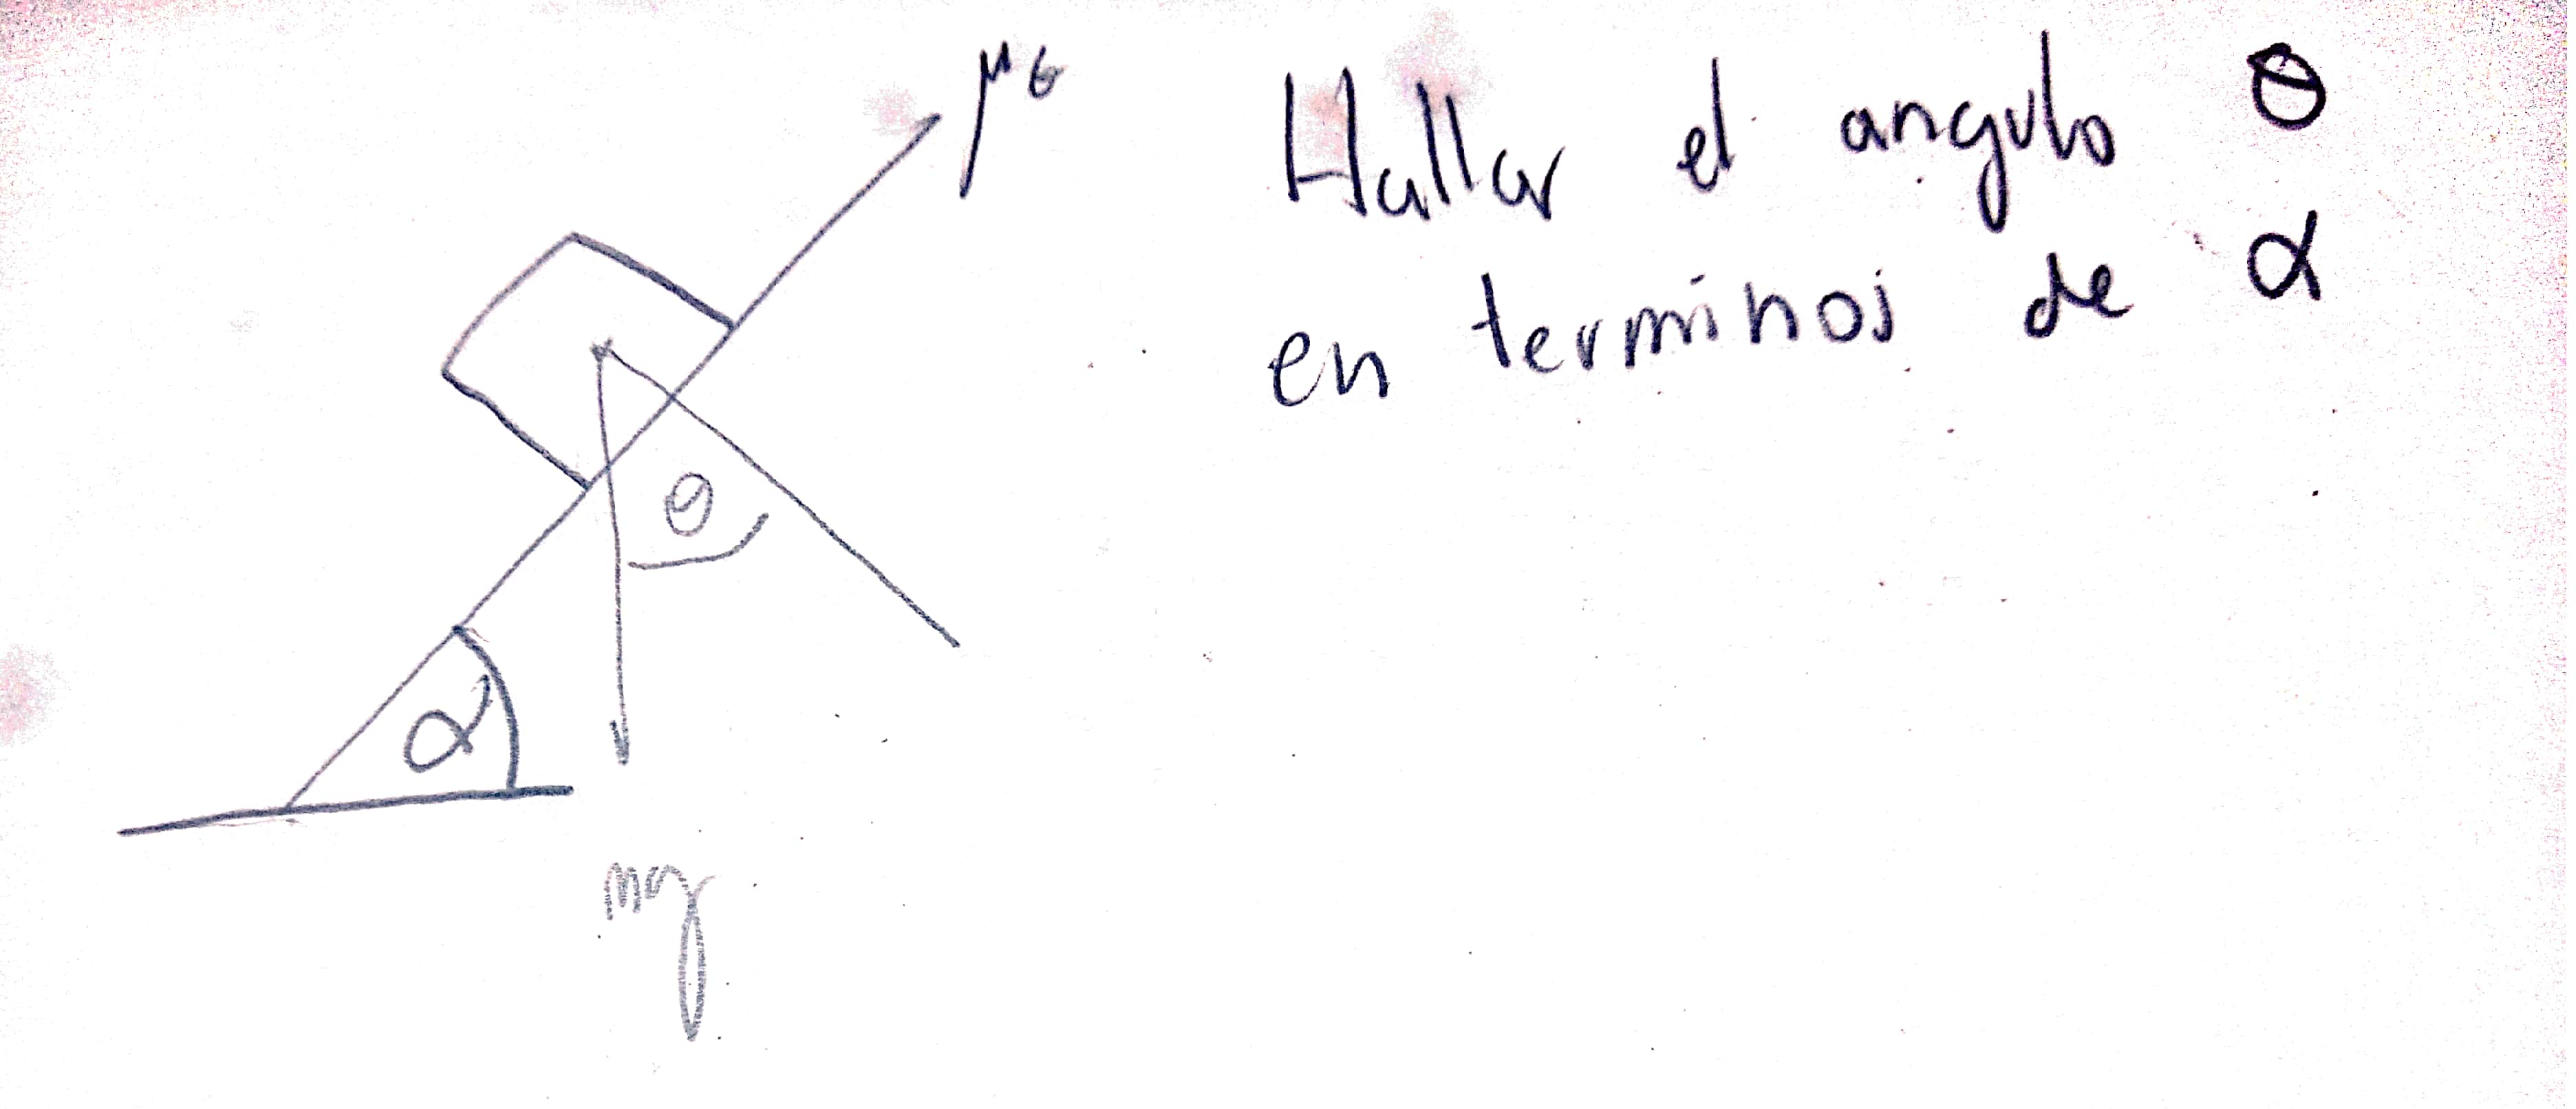 Hallar el angulo θ
en terminos de α
θ
α
mg